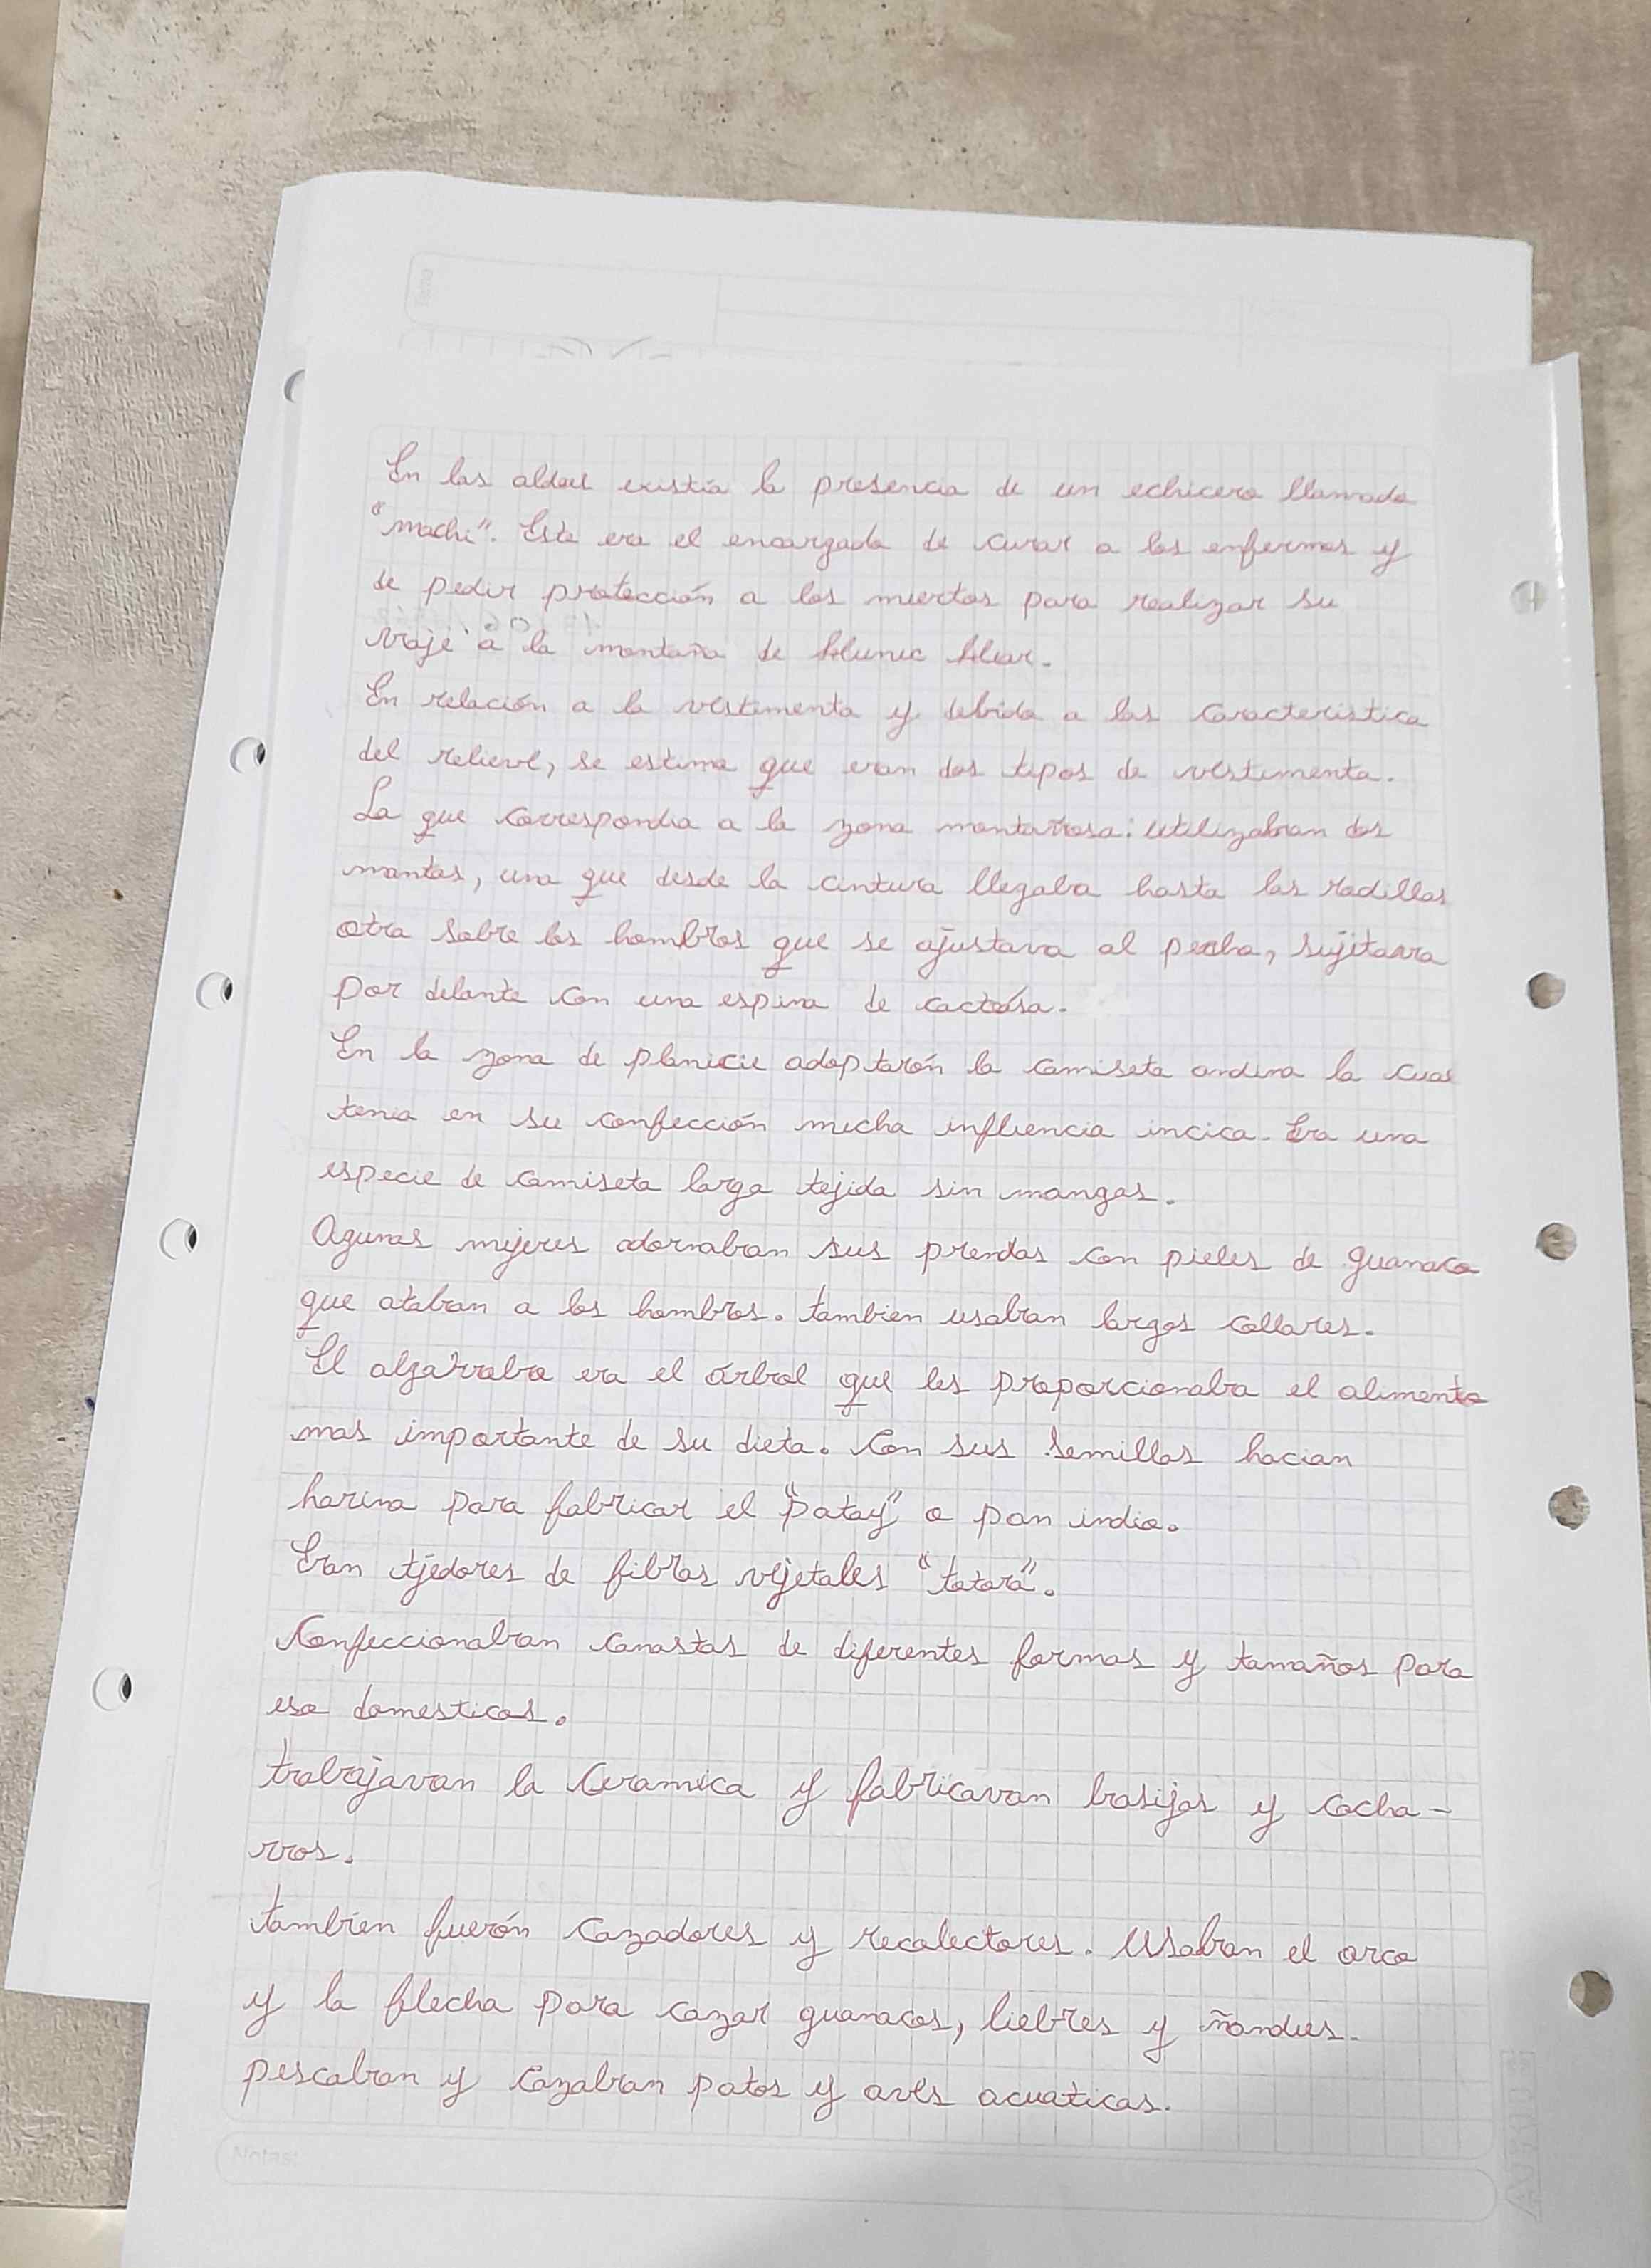 En las aldeas existía la presencia de un echicero llamado
"machi". Este era el encargado de curar a los enfermos y
de pedir protección a los muertos para realizar su
viaje a la montaña de Hunuc Huar.
En relación a la vestimenta y debido a las caracteristica
del relieve, se estima que eran dos tipos de vestimenta.
La que correspondia a la zona montañosa: utilizaban dos
mantas, una que desde la cintura llegaba hasta las rodillas
otra sobre los hombros que se ajustava al pecho, sujitavra
por delante con una espina de cactása.
En la zona de planicie adoptarón la camiseta andina la cual
tenia en su confección mucha influencia incica. Era una
especie de camiseta larga tejida sin mangas.
Agunas mujeres adornaban sus prendas con pieles de guanaco
que ataban a los hombros. tambien usaban largos collares.
El algarrobo era el árbol que les proporcionaba el alimento
mas importante de su dieta. Con sus semillas hacian
harina para fabricar el "patay" o pan indio.
Eran tjedores de fibras vejetales "totora".
Confeccionaban canastas de diferentes formas y tamaños para
uso domesticos.
trabajavan la ceramica y fabricavan basijas y cacha-
rros.
tambien fuerón cazadores y recolectores. Usaban el arco
y la flecha para cazar guanacos, liebres y ñandus.
pescaban y cazaban patos y aves acuaticas.
Notas: